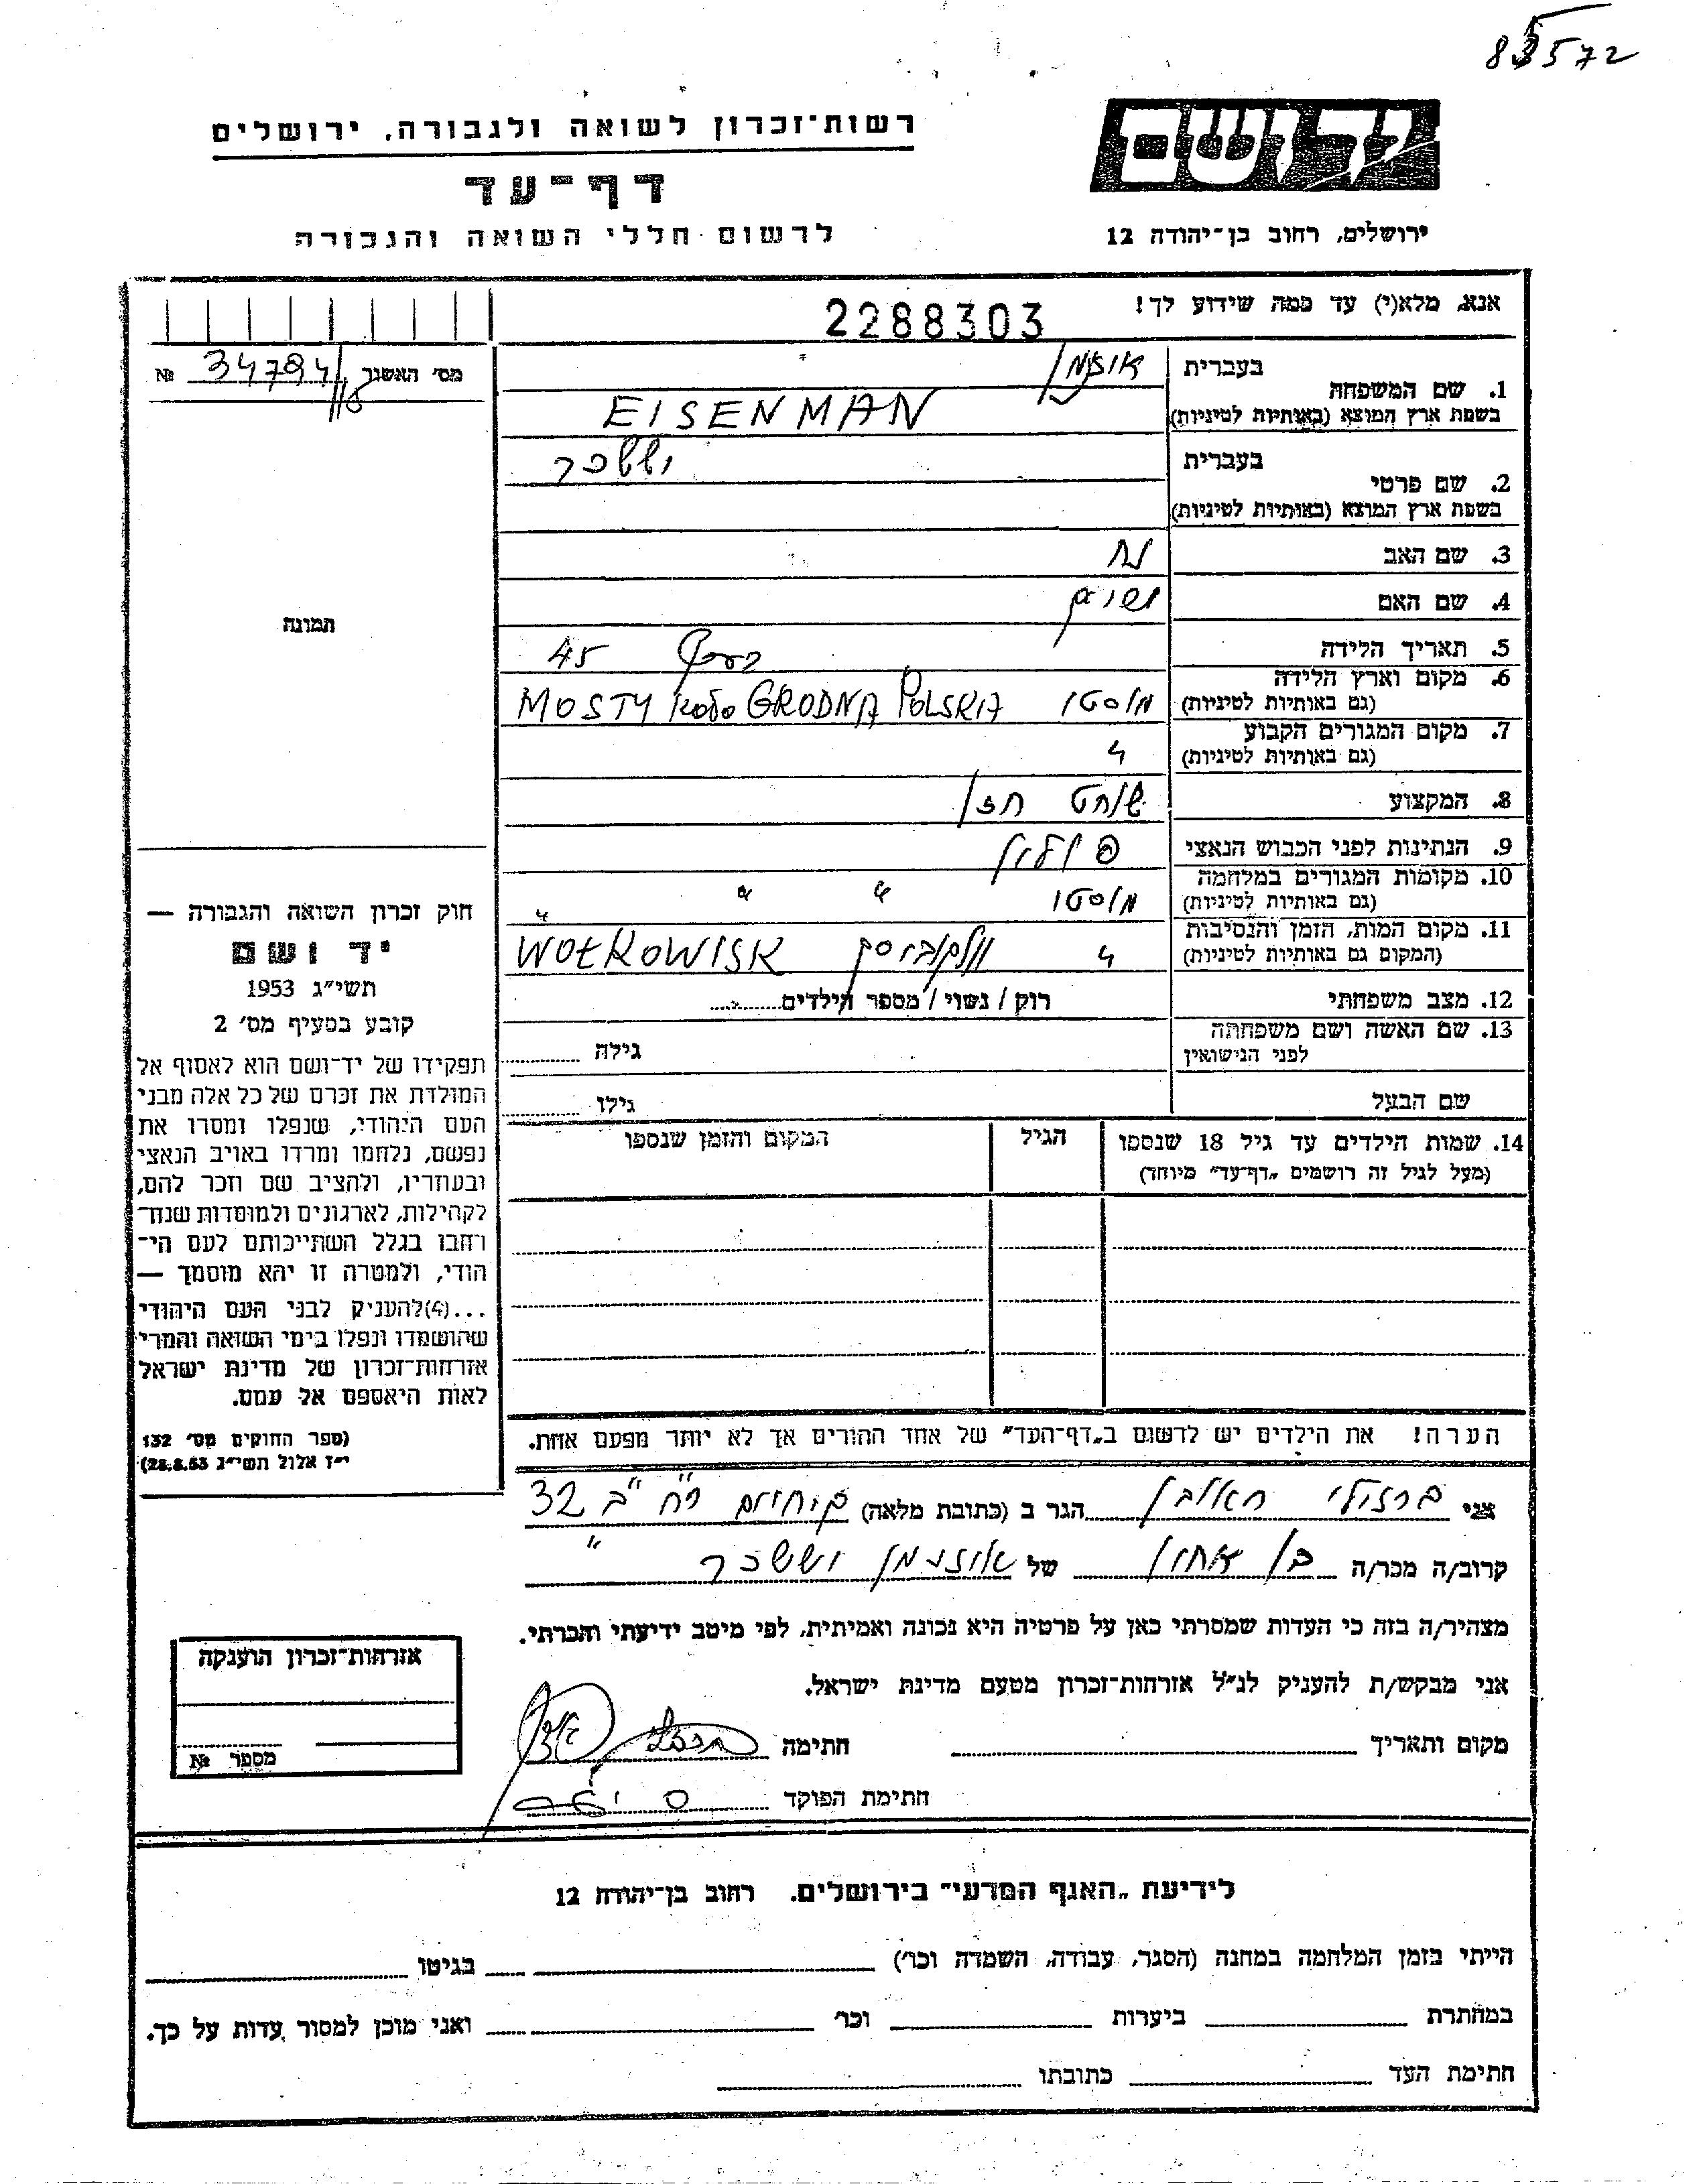 83572
יד ושם
רשות־זכרון לשואה ולגבורה, ירושלים
דף־עד
לרשום חללי השואה והגבורה
ירושלים, רחוב בן־יהודה 12
אנא, מלא(י) עד כמה שידוע לך!
2288303
מס' האשנר 34794 №
1. שם המשפחה
בעברית
בשפת ארץ המוצא (באותיות לטיניות)
EISENMAN
2. שם פרטי
בעברית יששכר
בשפת ארץ המוצא (באותיות לטיניות)
3. שם האב נח
4. שם האם
5. תאריך הלידה 45
6. מקום וארץ הלידה
(גם באותיות לטיניות) מוסטי MOSTY koło GRODNA POLSKA
7. מקום המגורים הקבוע
(גם באותיות לטיניות) "
8. המקצוע שוחט חזן
9. הנתינות לפני הכבוש הנאצי פולין
10. מקומות המגורים במלחמה
(גם באותיות לטיניות) מוסטי " " "
11. מקום המות, הזמן והנסיבות
(המקום גם באותיות לטיניות) " WOŁKOWISK
12. מצב משפחתי רוק / נשוי / מספר הילדים
13. שם האשה ושם משפחתה
לפני הנישואין
גילה
שם הבעל גילו
14. שמות הילדים עד גיל 18 שנספו
(מעל לגיל זה רושמים „דף־עד" מיוחד)
הגיל
המקום והזמן שנספו
הערה! את הילדים יש לרשום ב„דף־העד" של אחד ההורים אך לא יותר מפעם אחת.
תמונה
חוק זכרון השואה והגבורה —
יד ושם
תשי״ג 1953
קובע בסעיף מס' 2
תפקידו של יד־ושם הוא לאסוף אל
המולדת את זכרם של כל אלה מבני
העם היהודי, שנפלו ומסרו את
נפשם, נלחמו ומרדו באויב הנאצי
ובעוזריו, ולהציב שם וזכר להם,
לקהילות, לארגונים ולמוסדות שנח־
רחבו בגלל השתייכותם לעם הי־
הודי, ולמטרה זו יהא מוסמך —
...(4)להעניק לבני העם היהודי
שהושמדו ונפלו בימי השואה והמרי
אזרחות־זכרון של מדינת ישראל
לאות היאספם אל עמם.
(ספר החוקים מס' 132
י״ז אלול תשי״ג 28.8.53)
אני ברזולי הגר ב (כתובת מלאה) 32
קרוב/ה מכר/ה בן אחיו של אוזנימן יששכר
מצהיר/ה בזה כי העדות שמסרתי כאן על פרטיה היא נכונה ואמיתית, לפי מיטב ידיעתי והכרתי.
אני מבקש/ת להעניק לנ״ל אזרחות־זכרון מטעם מדינת ישראל.
מקום ותאריך חתימה
חתימת הפוקד
אזרחות־זכרון הוענקה
מספר №
לידיעת „האגף המדעי" בירושלים. רחוב בן־יהודה 12
הייתי בזמן המלחמה במחנה (הסגר, עבודה, השמדה וכו') בגיטו
במחתרת ביערות וכו' ואני מוכן למסור עדות על כך.
חתימת העד כתובתו